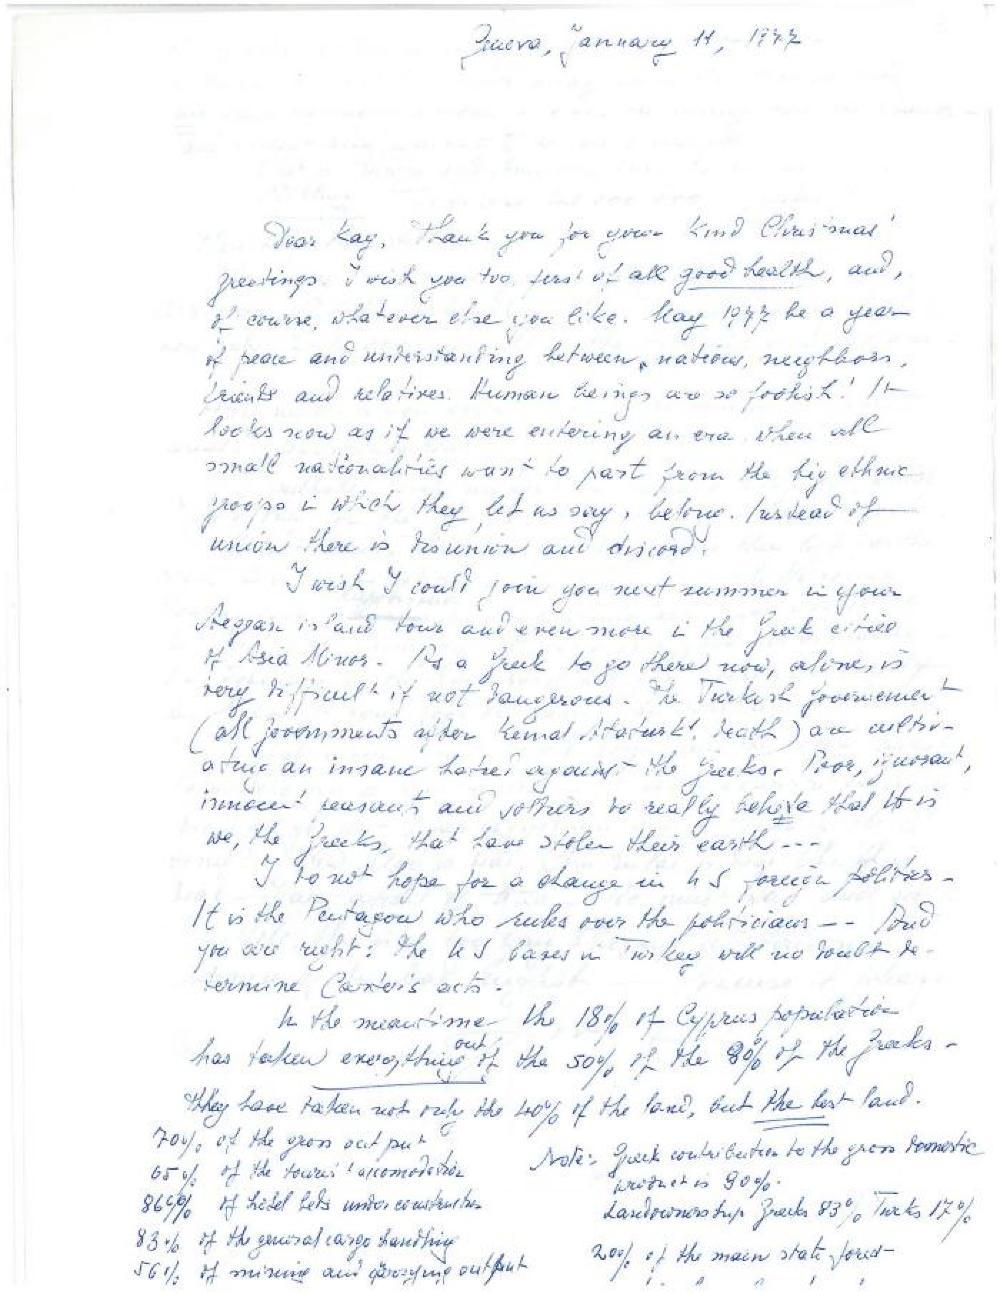 Geneva, January 11, 1977
Dear Kay, Thank you for your kind Christmas
greetings. I wish you too, first of all good health, and,
of course, whatever else you like. May 1977 be a year
of peace and understanding between nations, neighbors,
friends and relatives. Human beings are so foolish! It
looks now as if we were entering an era when all
small nationalities want to part from the big ethnic
groops in which they, let us say, belong. Instead of
union there is disunion and discord.
I wish I could join you next summer in your
Aegean island tour and even more in the Greek cities
of Asia Minor. As a Greek to go there now, alone, is
very difficult if not dangerous. The Turkish Governement
(all Governments after Kemal Ataturk's death) are cultiv-
ating an insane hatred against the Greeks. Poor, ignorant,
innocent peasants and soldiers do really believe that it is
we, the Greeks, that have stolen their earth ---
I do not hope for a change in US foreign politics -
It is the Pentagon who rules over the politicians -- And
you are right: the US bases in Turkey will no doubt de-
termine Carter's acts.
In the meantime the 18% of Cyprus population
has taken everything out of the 50% of the 80% of the Greeks -
they have taken not only the 40% of the land, but the best land.
70% of the gross output
65% of the tourist accomodation
% of hotel beds under construction
83% of the general cargo handling
56% of mining and quarrying output
Note: Greek contribution to the gross domestic
product is 90%.
Landownership Greeks 83% Turks 17%
20% of the main state forest